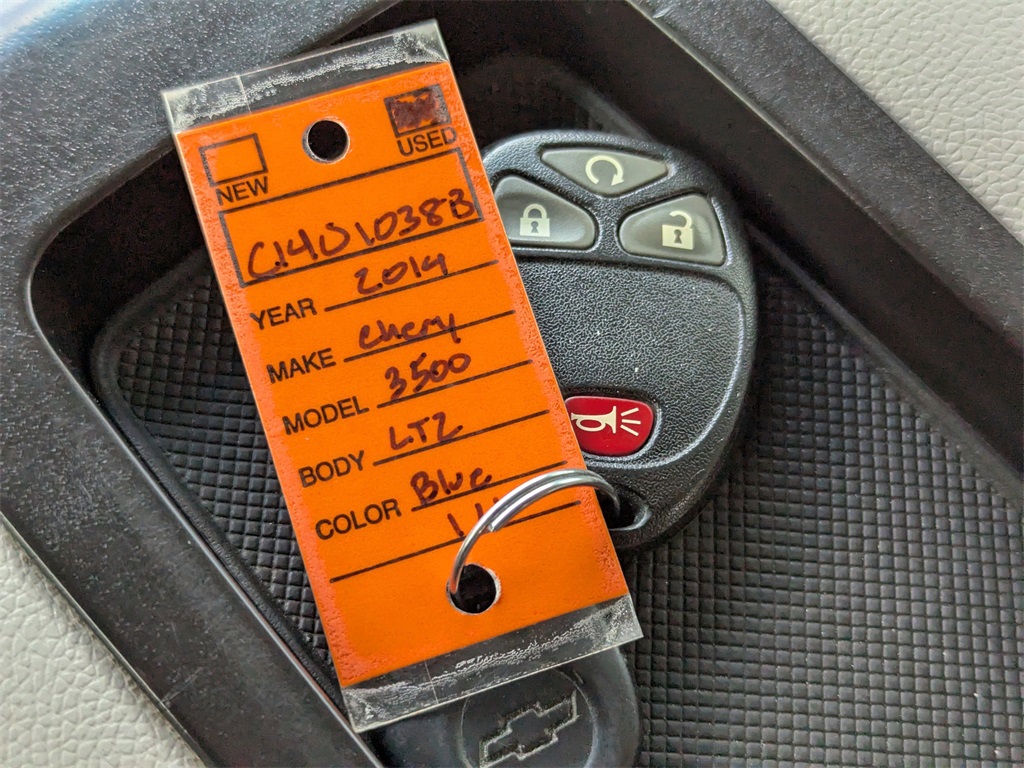 NEW USED
C14U1038B
YEAR 2014
MAKE Chevy
MODEL 3500
BODY LTZ
COLOR Blue